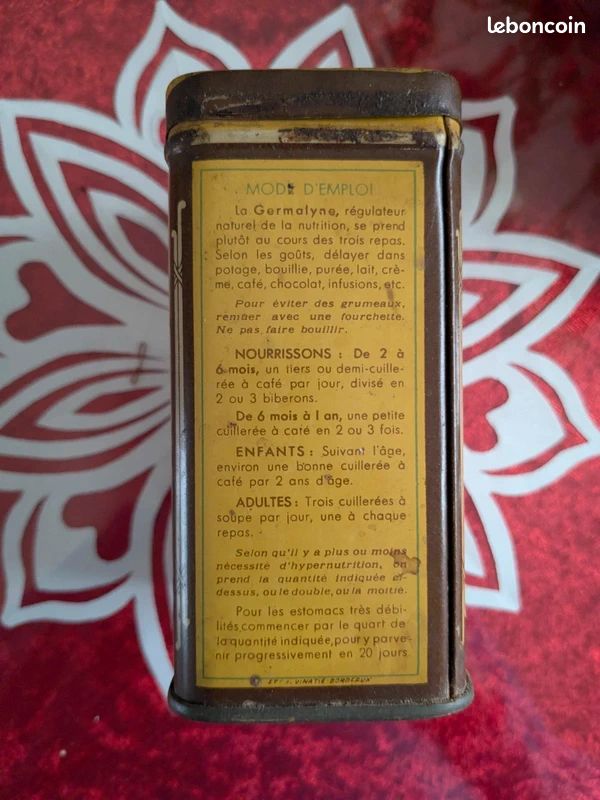 leboncoin
MODE D'EMPLOI
La Germalyne, régulateur
naturel de la nutrition, se prend
plutôt au cours des trois repas.
Selon les goûts, délayer dans
potage, bouillie, purée, lait, crè-
me, café, chocolat, infusions, etc.
Pour éviter des grumeaux,
remuer avec une fourchette.
Ne pas faire bouillir.
NOURRISSONS : De 2 à
6 mois, un tiers ou demi-cuille-
rée à café par jour, divisé en
2 ou 3 biberons.
De 6 mois à 1 an, une petite
cuillerée à café en 2 ou 3 fois.
ENFANTS : Suivant l'âge,
environ une bonne cuillerée à
café par 2 ans d'âge.
ADULTES : Trois cuillerées à
soupe par jour, une à chaque
repas.
Selon qu'il y a plus ou moins
nécessité d'hypernutrition, on
prend la quantité indiquée ci-
dessus, ou le double, ou la moitié.
Pour les estomacs très débi-
lités, commencer par le quart de
la quantité indiquée, pour y parve-
nir progressivement en 20 jours
VINATIÉ BORDEAUX